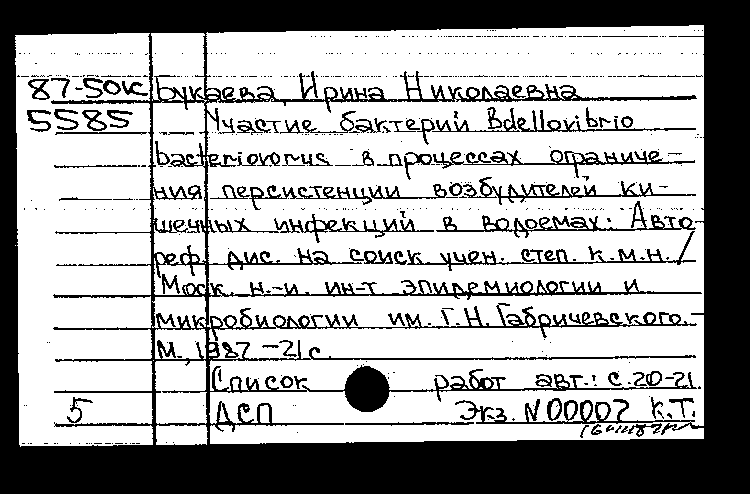 87-50к Букаева, Ирина Николаевна
5585 Участие бактерий Bdellovibrio
bacteriovorus в процессах ограниче-
ния персистенции возбудителей ки-
шечных инфекций в водоемах: Авто-
реф. дис. на соиск. учен. степ. к.м.н. /
Моск. н.-и. ин-т эпидемиологии и
микробиологии им. Г.Н. Габричевского. -
М., 1987 - 21 с.
Список работ авт.: с. 20-21.
5 ДСП Экз. N 00007 К.Т.